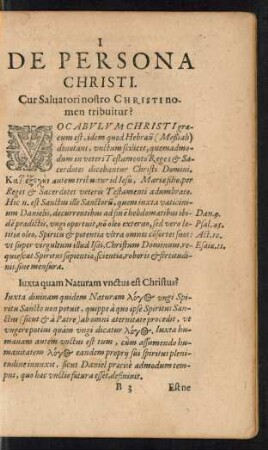 I
DE PERSONA
CHRISTI.
Cur Saluatori nostro CHRISTI no-
men tribuitur?
VOCABVLVM CHRISTI græ-
cum est, idem quod Hebræū (Mesicah)
dinotans, vnctum scilicet, quemadmo-
dum in veteri Testamento Reges & Sa-
cerdotes dicebantur Christi Domini.
autem tribuitur id Iesu, Mariæ filio, per
Reges & Sacerdotes veteris Testamenti adumbrato.
Hic n. est Sanctus ille Sanctorū, quem iuxta vaticini-
um Danielis, decurrentibus ad finē hebdomatibus ibi- Dan.9.
dē prædictis, vngi oportuit, nō oleo externo, sed vero læ- Psal.45.
titiæ oleo, Spiritu & potentia vltra omnes cæteros: sun- Act.10.
vt super virgultum illud Isai, Christum Dominum re- Esaiæ.11.
quiescat Spiritus sapientiæ, scientiæ, roboris & fortitudi-
nis sine mensura.
Iuxta quam Naturam vnctus est Christus?
Iuxta diuinam quidem Naturam λόγ⊙ vngi Spiri-
tu Sancto non potuit, quippe à quo ipse Spiritus San-
ctus (sicut & à Patre) ab omni æternitate procedit, vt
vnge re potius quàm vngi dicatur λόγ⊙. Iuxta hu-
manam autem vnctus est tum, cùm assumendo hu-
manitatem λόγ⊙ eandem proprij sui spiritus pleni-
tudine inunxit, sicut Daniel præcisè admodum tem-
pus, quo hæc vnctio futura esset, definiuit.
B 3 Estne